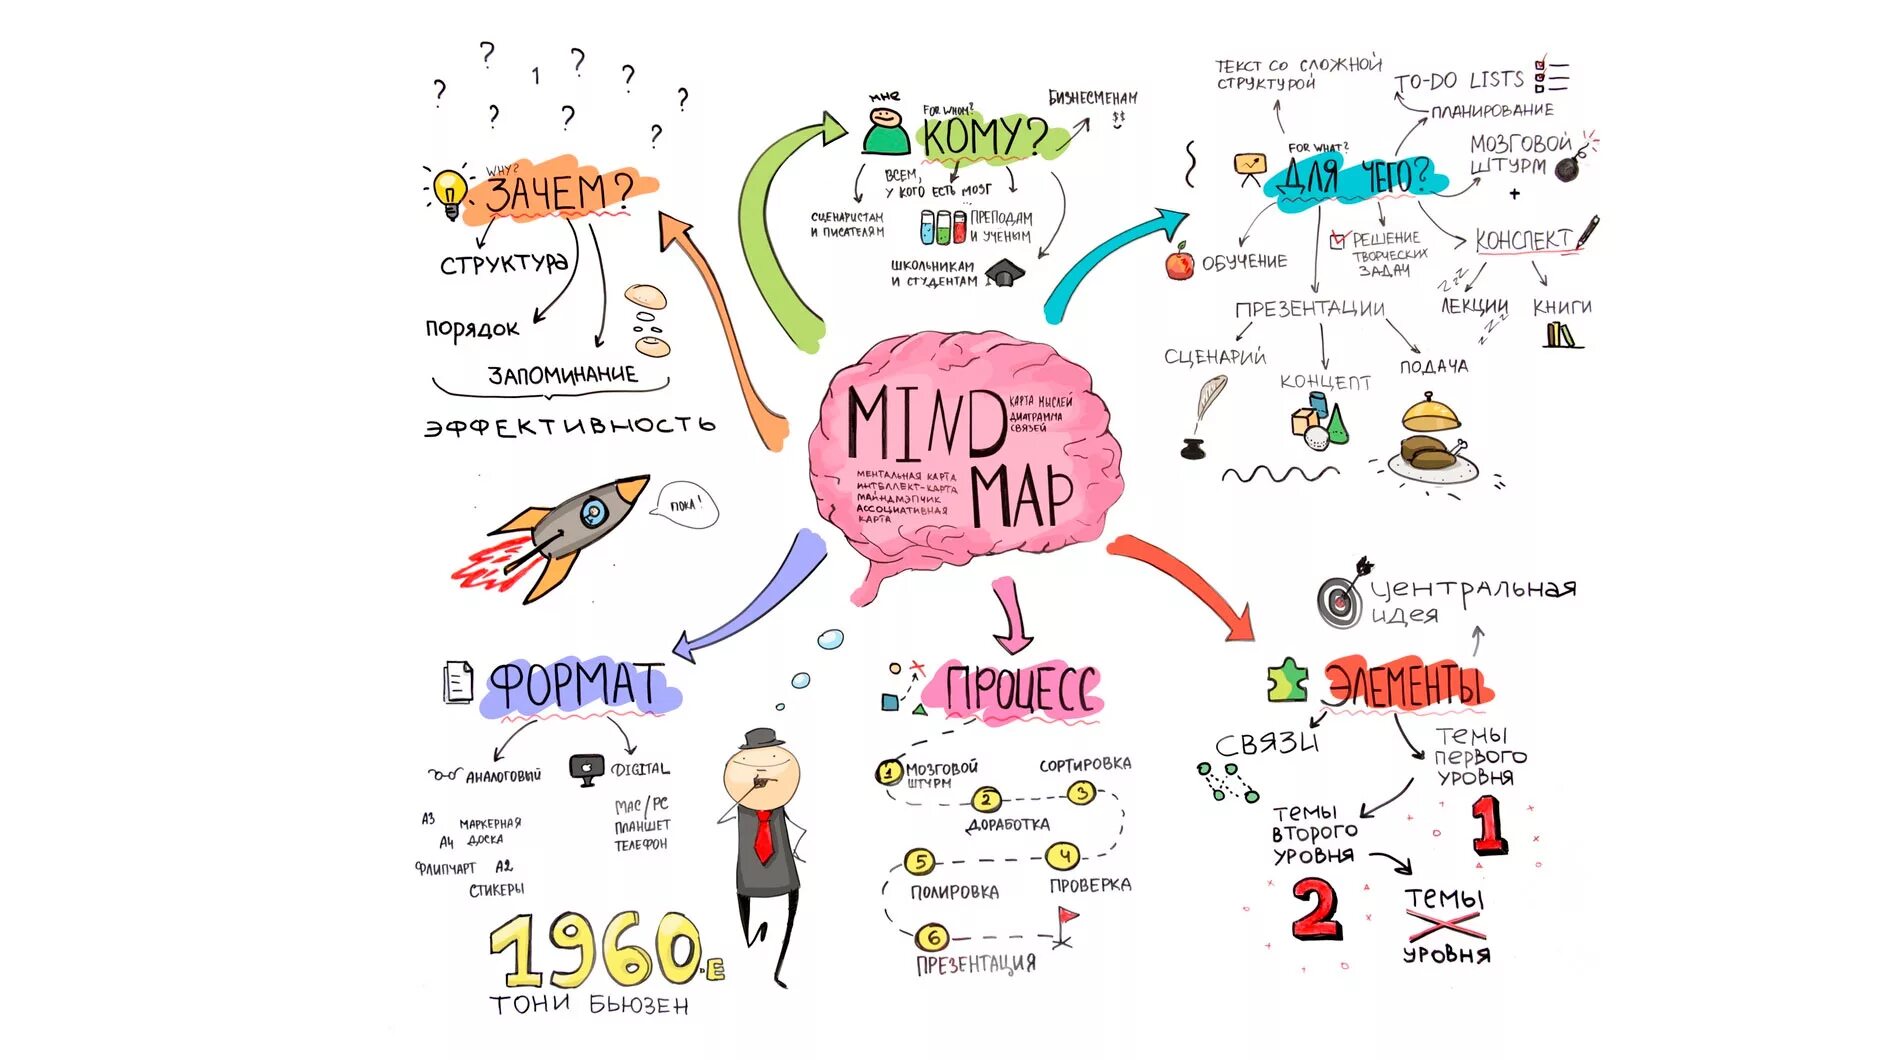 ? ? 1 ? ? ?
? ? ?
?
WHY?
ЗАЧЕМ?
СТРУКТУРА
ПОРЯДОК
ЗАПОМИНАНИЕ
ЭФФЕКТИВНОСТЬ
ПОКА!
МНЕ
FOR WHOM?
КОМУ?
БИЗНЕСМЕНАМ
$$
ВСЕМ,
У КОГО ЕСТЬ МОЗГ
...
СЦЕНАРИСТАМ
И ПИСАТЕЛЯМ
ПРЕПОДАМ
И УЧЕНЫМ
ШКОЛЬНИКАМ
И СТУДЕНТАМ
ТЕКСТ СО СЛОЖНОЙ
СТРУКТУРОЙ
TO-DO LISTS
ПЛАНИРОВАНИЕ
FOR WHAT?
ДЛЯ ЧЕГО?
МОЗГОВОЙ
ШТУРМ
+
КОНСПЕКТ
ZZZ
ЛЕКЦИИ
ZZZ
КНИГИ
РЕШЕНИЕ
ТВОРЧЕСКИХ
ЗАДАЧ
ОБУЧЕНИЕ
ПРЕЗЕНТАЦИИ
СЦЕНАРИЙ
КОНЦЕПТ
ПОДАЧА
MIND
КАРТА МЫСЛЕЙ
ДИАГРАММА
СВЯЗЕЙ
MAP
МЕНТАЛЬНАЯ КАРТА
ИНТЕЛЛЕКТ-КАРТА
МАЙНДМЭПЧИК
АССОЦИАТИВНАЯ
КАРТА
ФОРМАТ
АНАЛОГОВЫЙ
А3
МАРКЕРНАЯ
ДОСКА
А4
ФЛИПЧАРТ
А2
СТИКЕРЫ
DIGITAL
MAC/PC
ПЛАНШЕТ
ТЕЛЕФОН
1960-Е
ТОНИ БЬЮЗЕН
ПРОЦЕСС
1
МОЗГОВОЙ
ШТУРМ
2
ДОРАБОТКА
СОРТИРОВКА
3
4
ПРОВЕРКА
5
ПОЛИРОВКА
6
ПРЕЗЕНТАЦИЯ
ЦЕНТРАЛЬНАЯ
ИДЕЯ
ЭЛЕМЕНТЫ
СВЯЗИ
ТЕМЫ
ПЕРВОГО
УРОВНЯ
1
ТЕМЫ
ВТОРОГО
УРОВНЯ
2
ТЕМЫ
X
УРОВНЯ